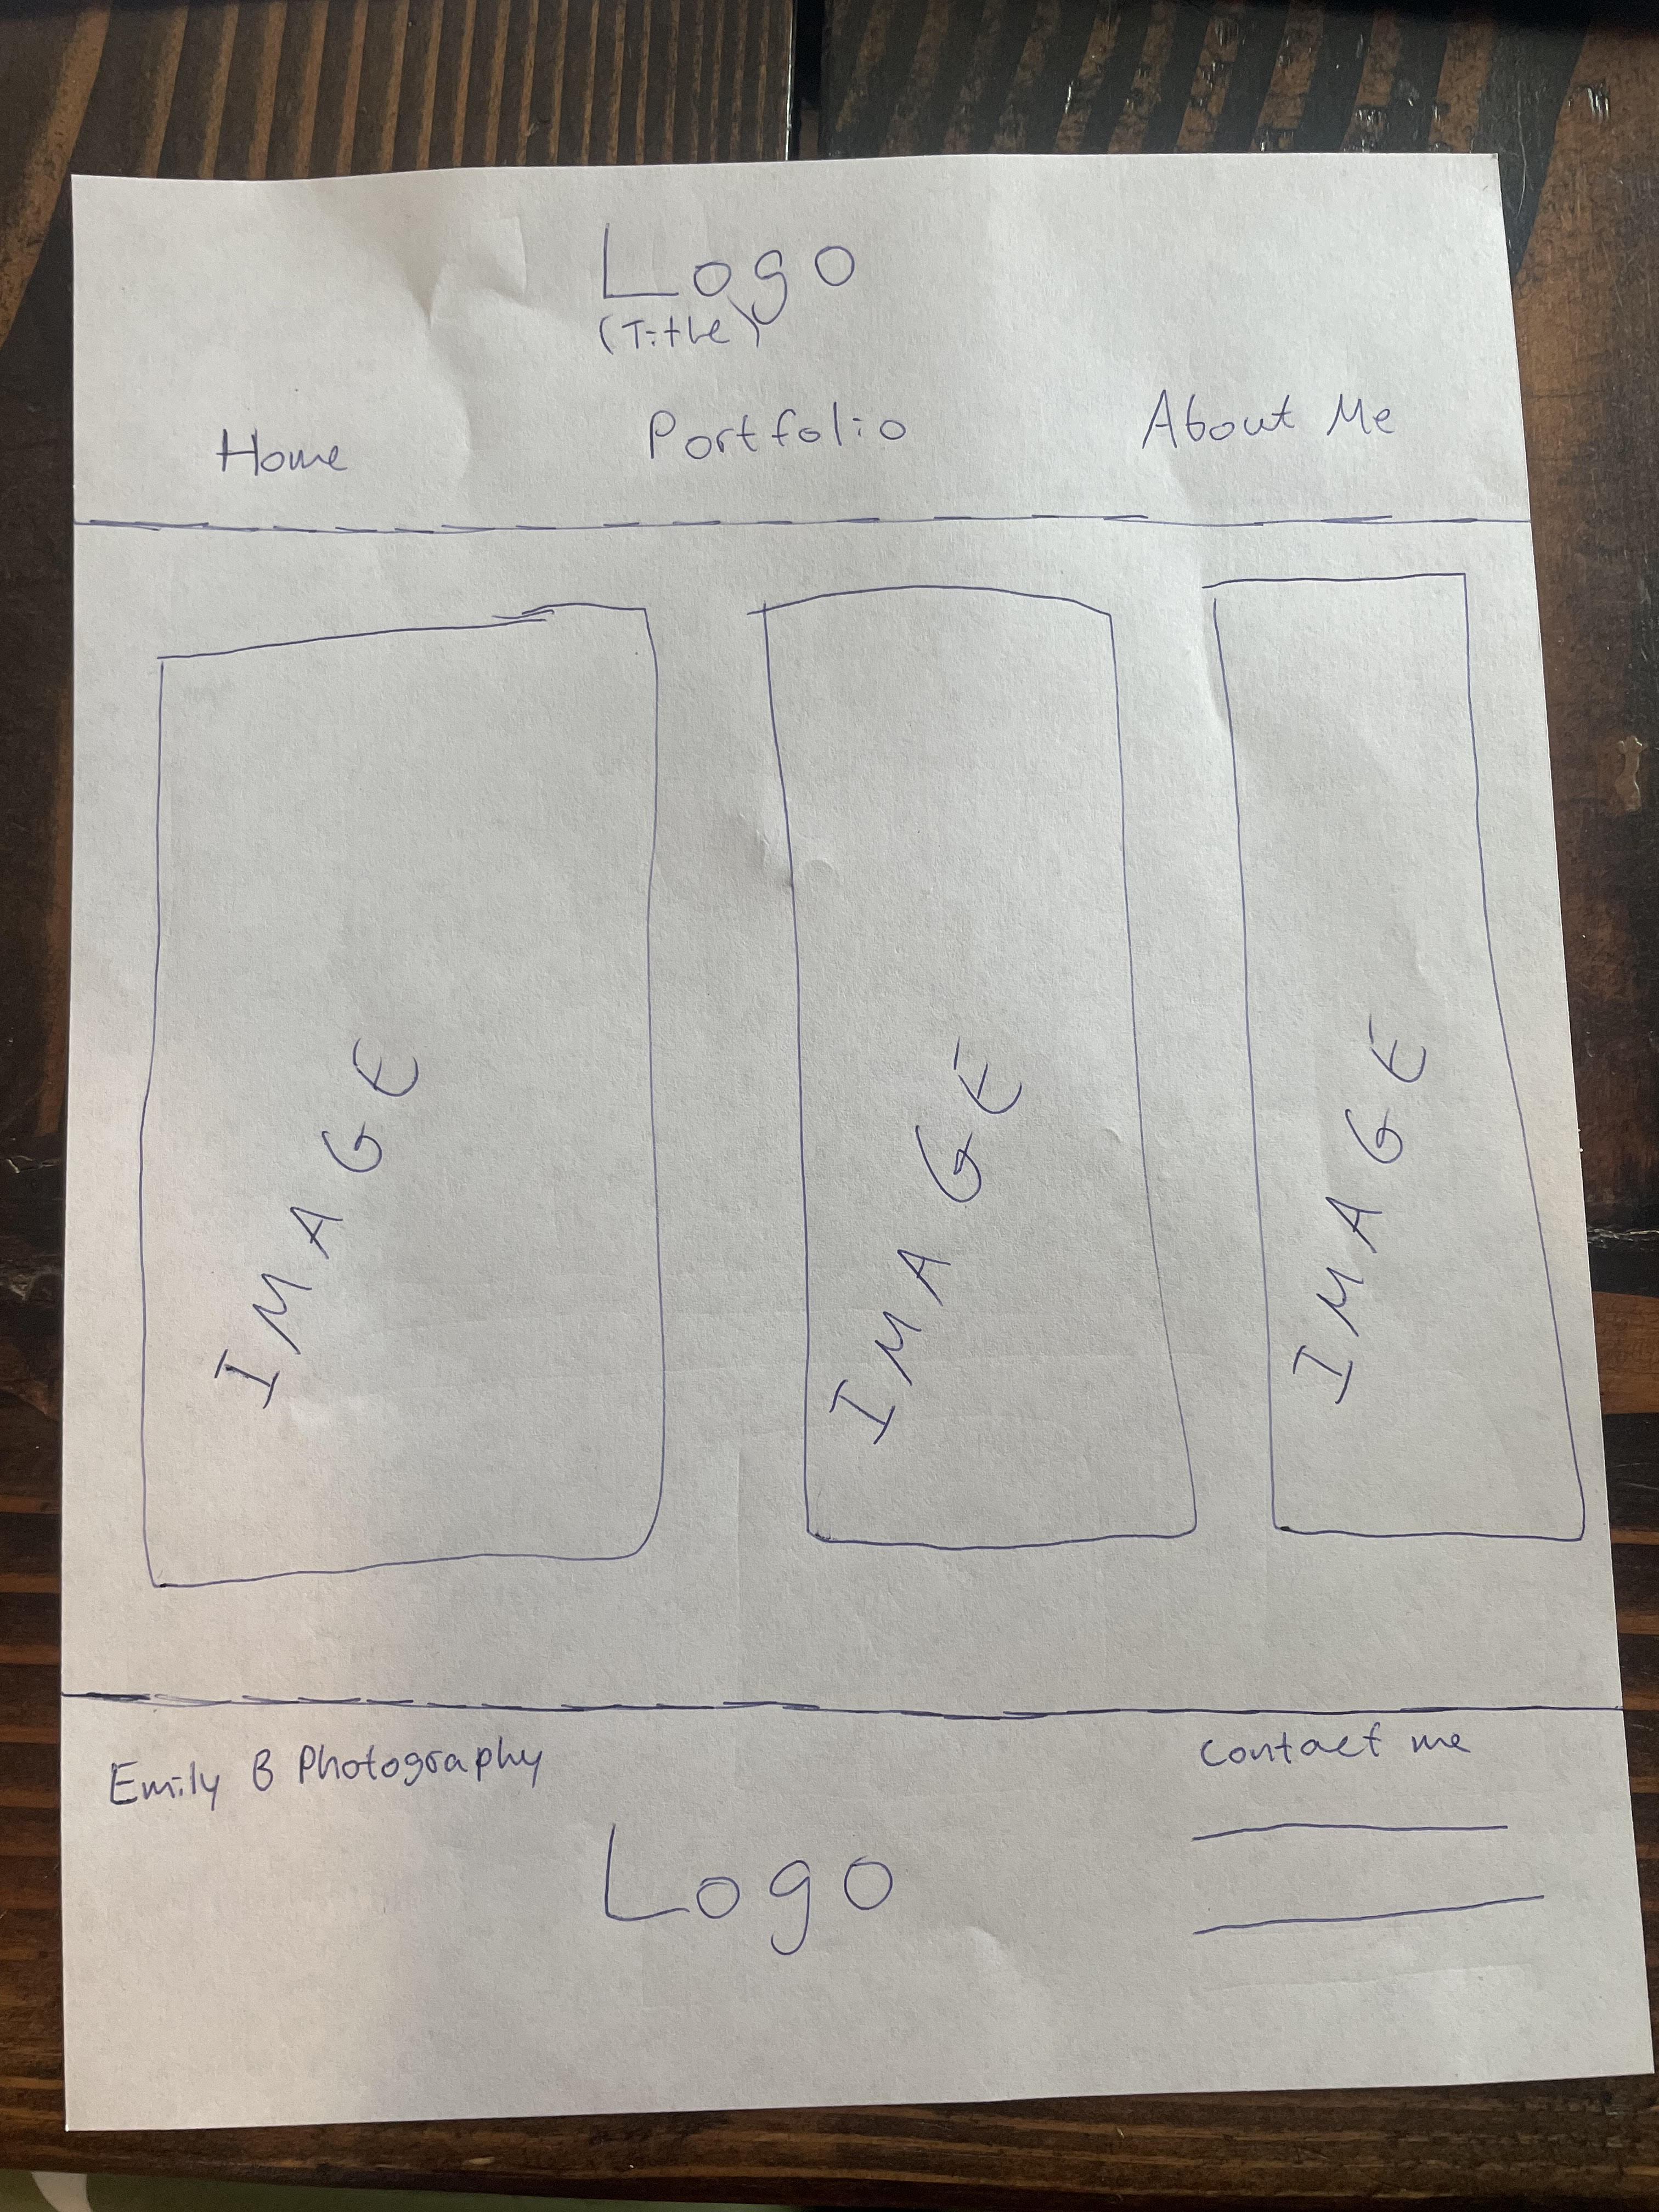 Logo
(Title)
Home Portfolio About Me
IMAGE IMAGE IMAGE
Emily B Photography contact me
Logo